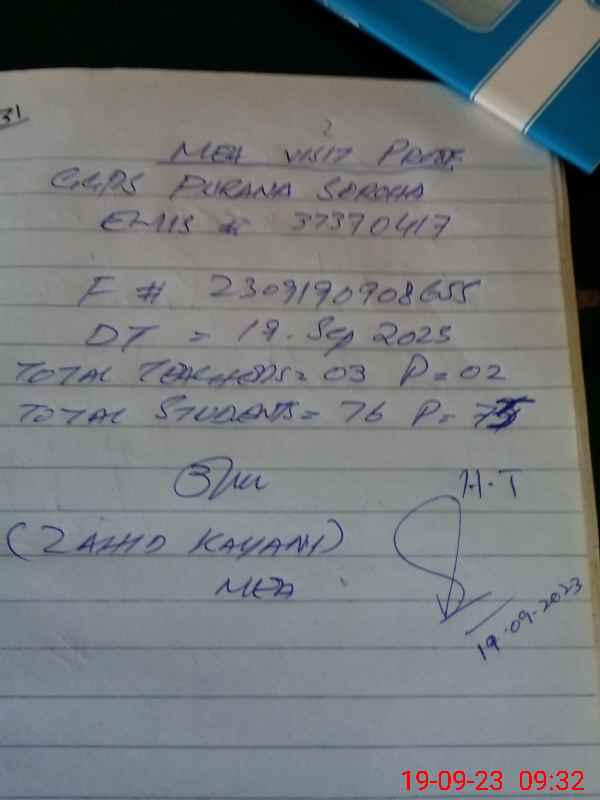 31
MEA VISIT PROOF
GGPS PURANA SOROHA
EMIS # 37370417
F # 2309190908655
DT = 19. Sep 2023
TOTAL TEACHERS = 03 P = 02
TOTAL STUDENTS = 76 P = 75
H.T
(ZAHID KAYANI)
MEA
19.09.2023
19-09-23 09:32